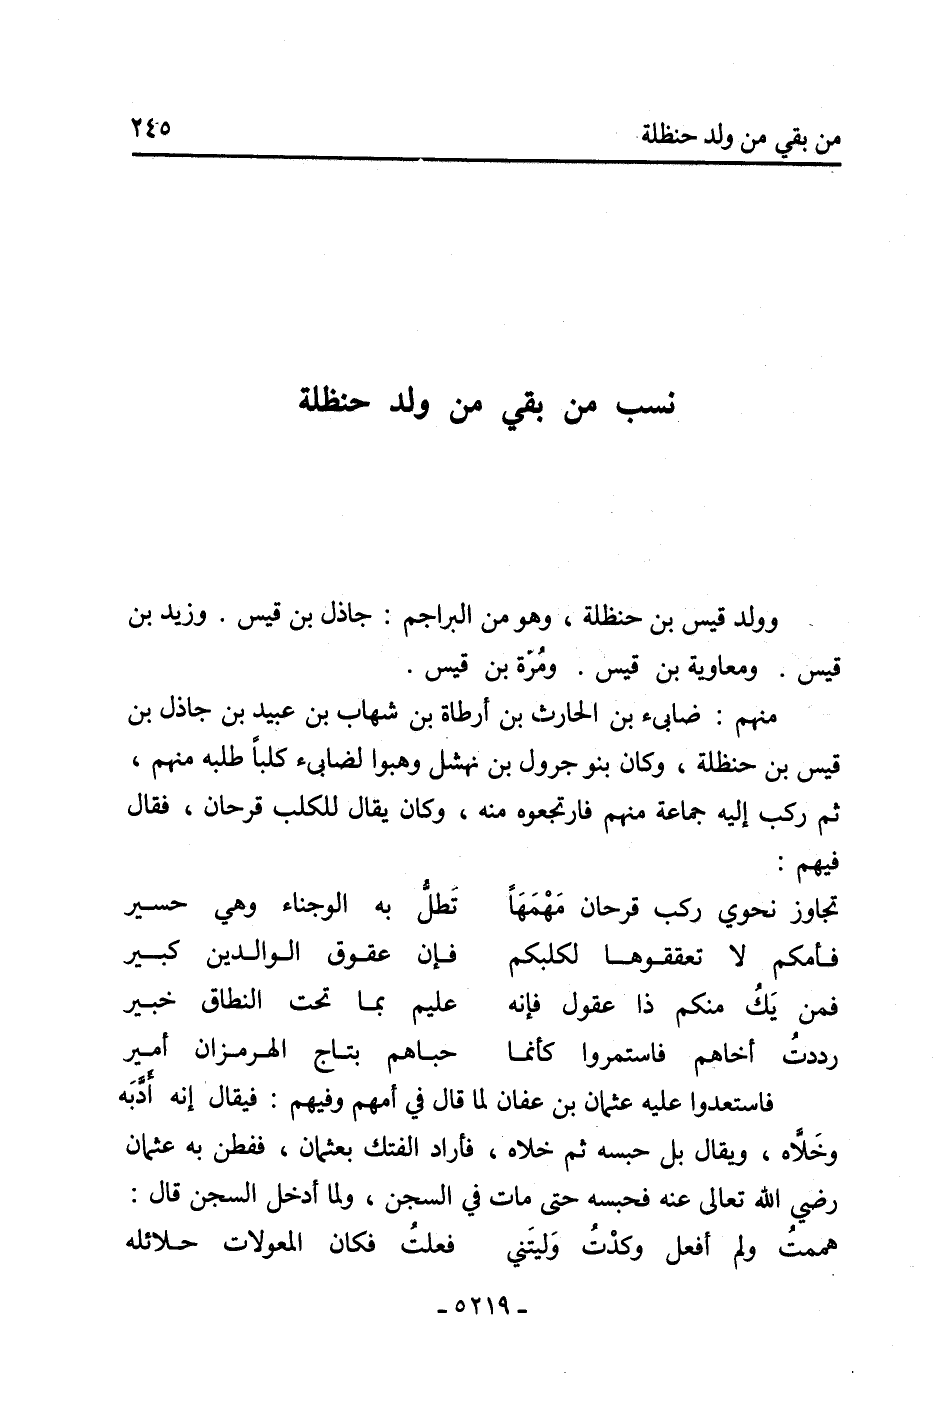 من بقي من ولد حنظلة ٢٤٥
نسب من بقي من ولد حنظلة
وولد قيس بن حنظلة ، وهو من البراجم : جاذل بن قيس . وزيد بن
قيس . ومعاوية بن قيس . ومُرّة بن قيس .
منهم : ضابىء بن الحارث بن أرطاة بن شهاب بن عبيد بن جاذل بن
قيس بن حنظلة ، وكان بنو جرول بن نهشل وهبوا لضابىء كلباً طلبه منهم ،
ثم ركب إليه جماعة منهم فارتجعوه منه ، وكان يقال للكلب قرحان ، فقال
فيهم :
تجاوز نحوي ركب قرحان مَهْمَهَاً تَطلُّ به الوجناء وهي حسير
فأمكم لا تعققوها لكلبكم فإن عقوق الوالدين كبير
فمن يَكُ منكم ذا عقول فإنه عليم بما تحت النطاق خبير
رددتُ أخاهم فاستمروا كأنما حباهم بتاج الهرمزان أمير
فاستعدوا عليه عثمان بن عفان لما قال في أمهم وفيهم : فيقال إنه أَدَّبَه
وخَلَّاه ، ويقال بل حبسه ثم خلاه ، فأراد الفتك بعثمان ، ففطن به عثمان
رضي الله تعالى عنه فحبسه حتى مات في السجن ، ولما أدخل السجن قال :
هممتُ ولم أفعل وكدْتُ وَليتَني فعلتُ فكان المعولات حلائله
ـ ٥٢١٩ ـ